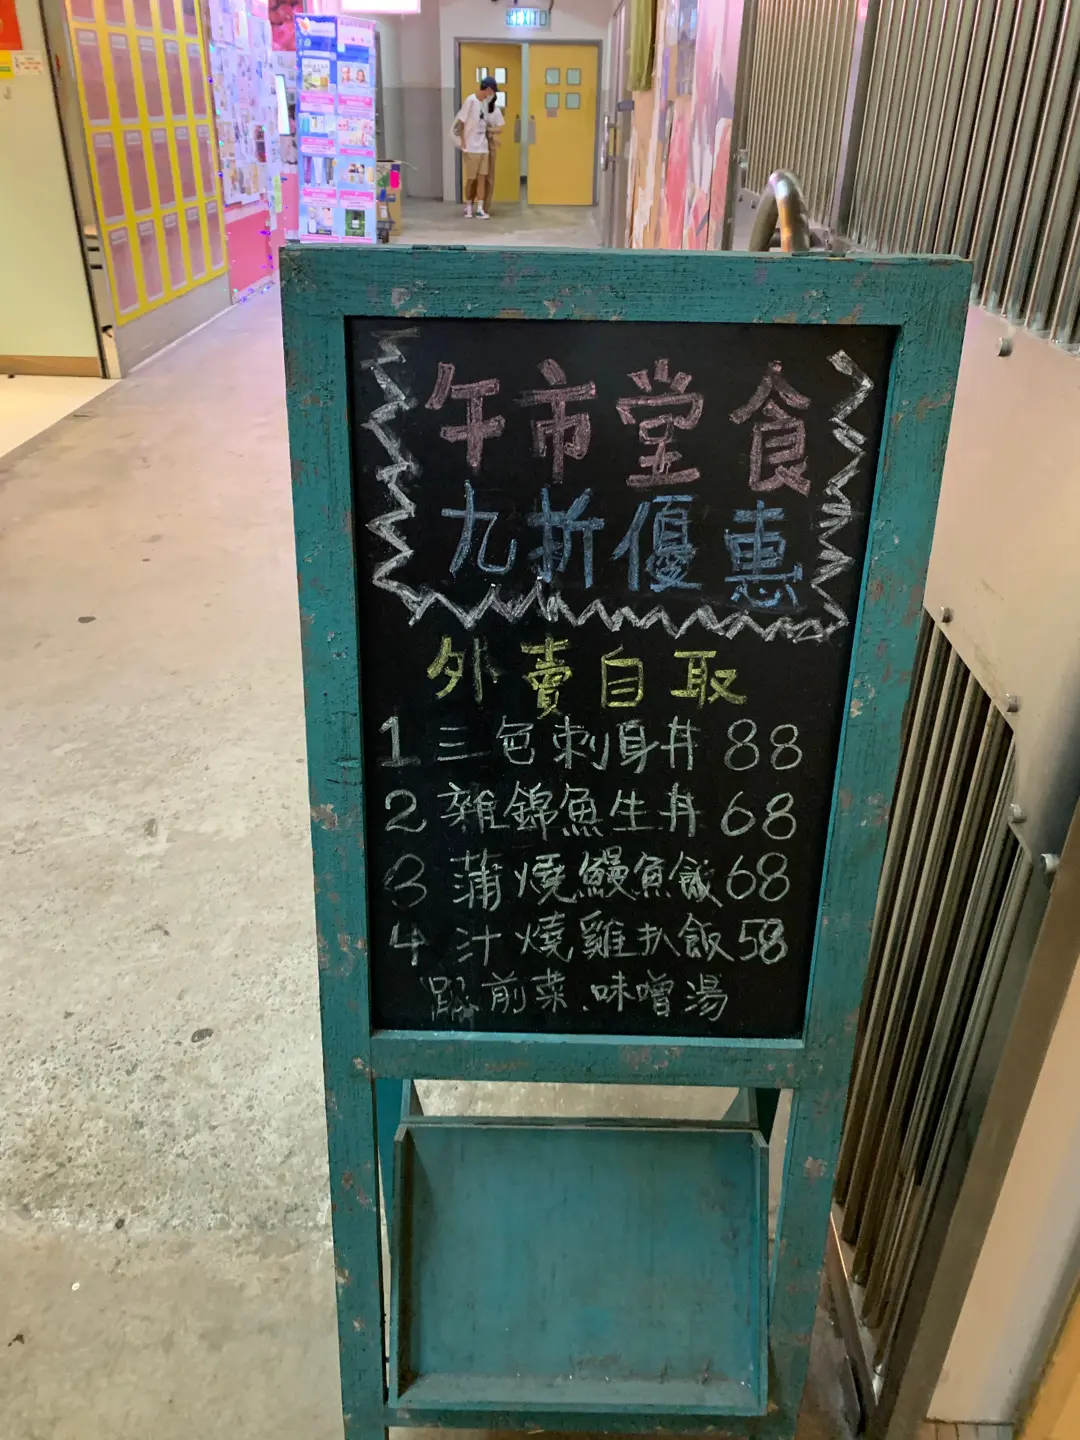 EXIT
午市堂食
九折優惠
外賣自取
1 三色刺身丼 88
2 雜錦魚生丼 68
3 蒲燒鰻魚飯 68
4 汁燒雞扒飯 58
跟前菜.味噌湯